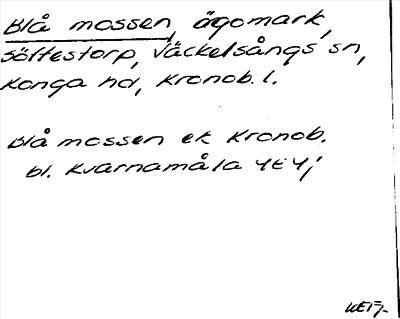 Blå mossen, ägomark,
Söftestorp, Väckelsångs sn,
Konga hd, Kronob. l.
Blå mossen ek Kronob.
bl. Kvarnamåla 4E4j